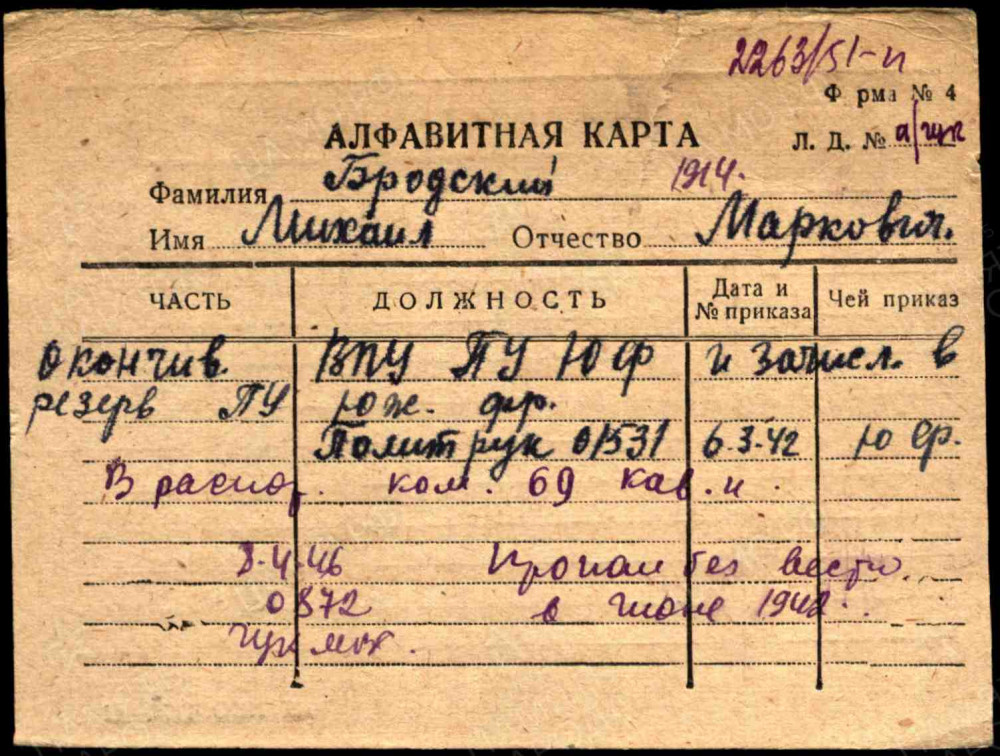 2263/51-п
Ф рма № 4
АЛФАВИТНАЯ КАРТА
Л. Д. №
Фамилия Бродский 1914.
Имя Михаил Отчество Маркович.
ЧАСТЬ ДОЛЖНОСТЬ Дата и № приказа Чей приказ
окончив. ВПУ ПУ ЮФ и зачисл. в
резерв ПУ юж. фр.
Политрук 01531 6.3.42 Ю фр.
В распор. ком. 69 кав.
Пропал без вести
0872 в июне 1942.